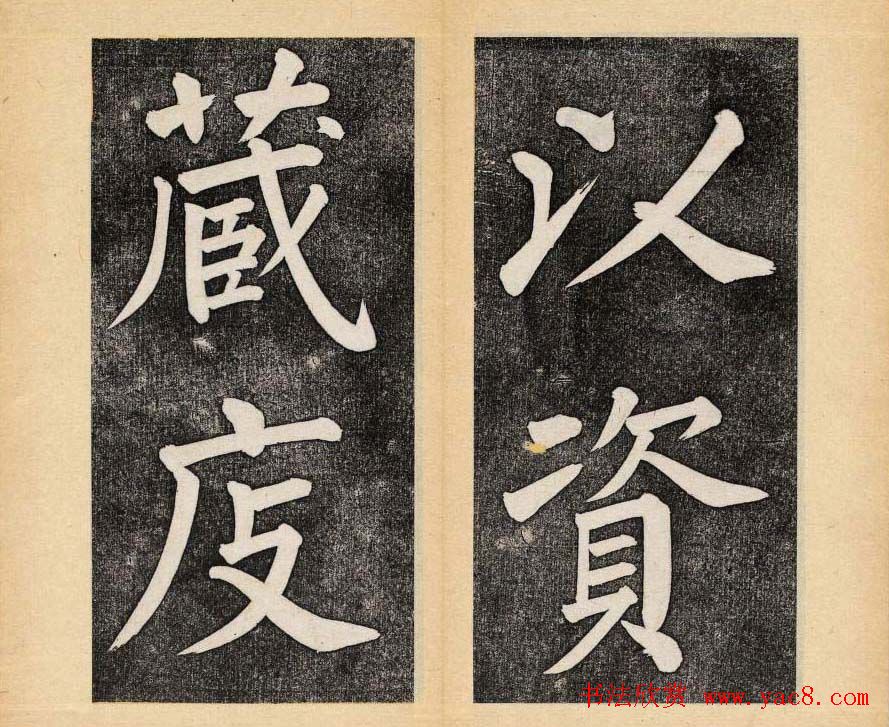 以資
蔵庋
书法欣赏 www.yac8.com